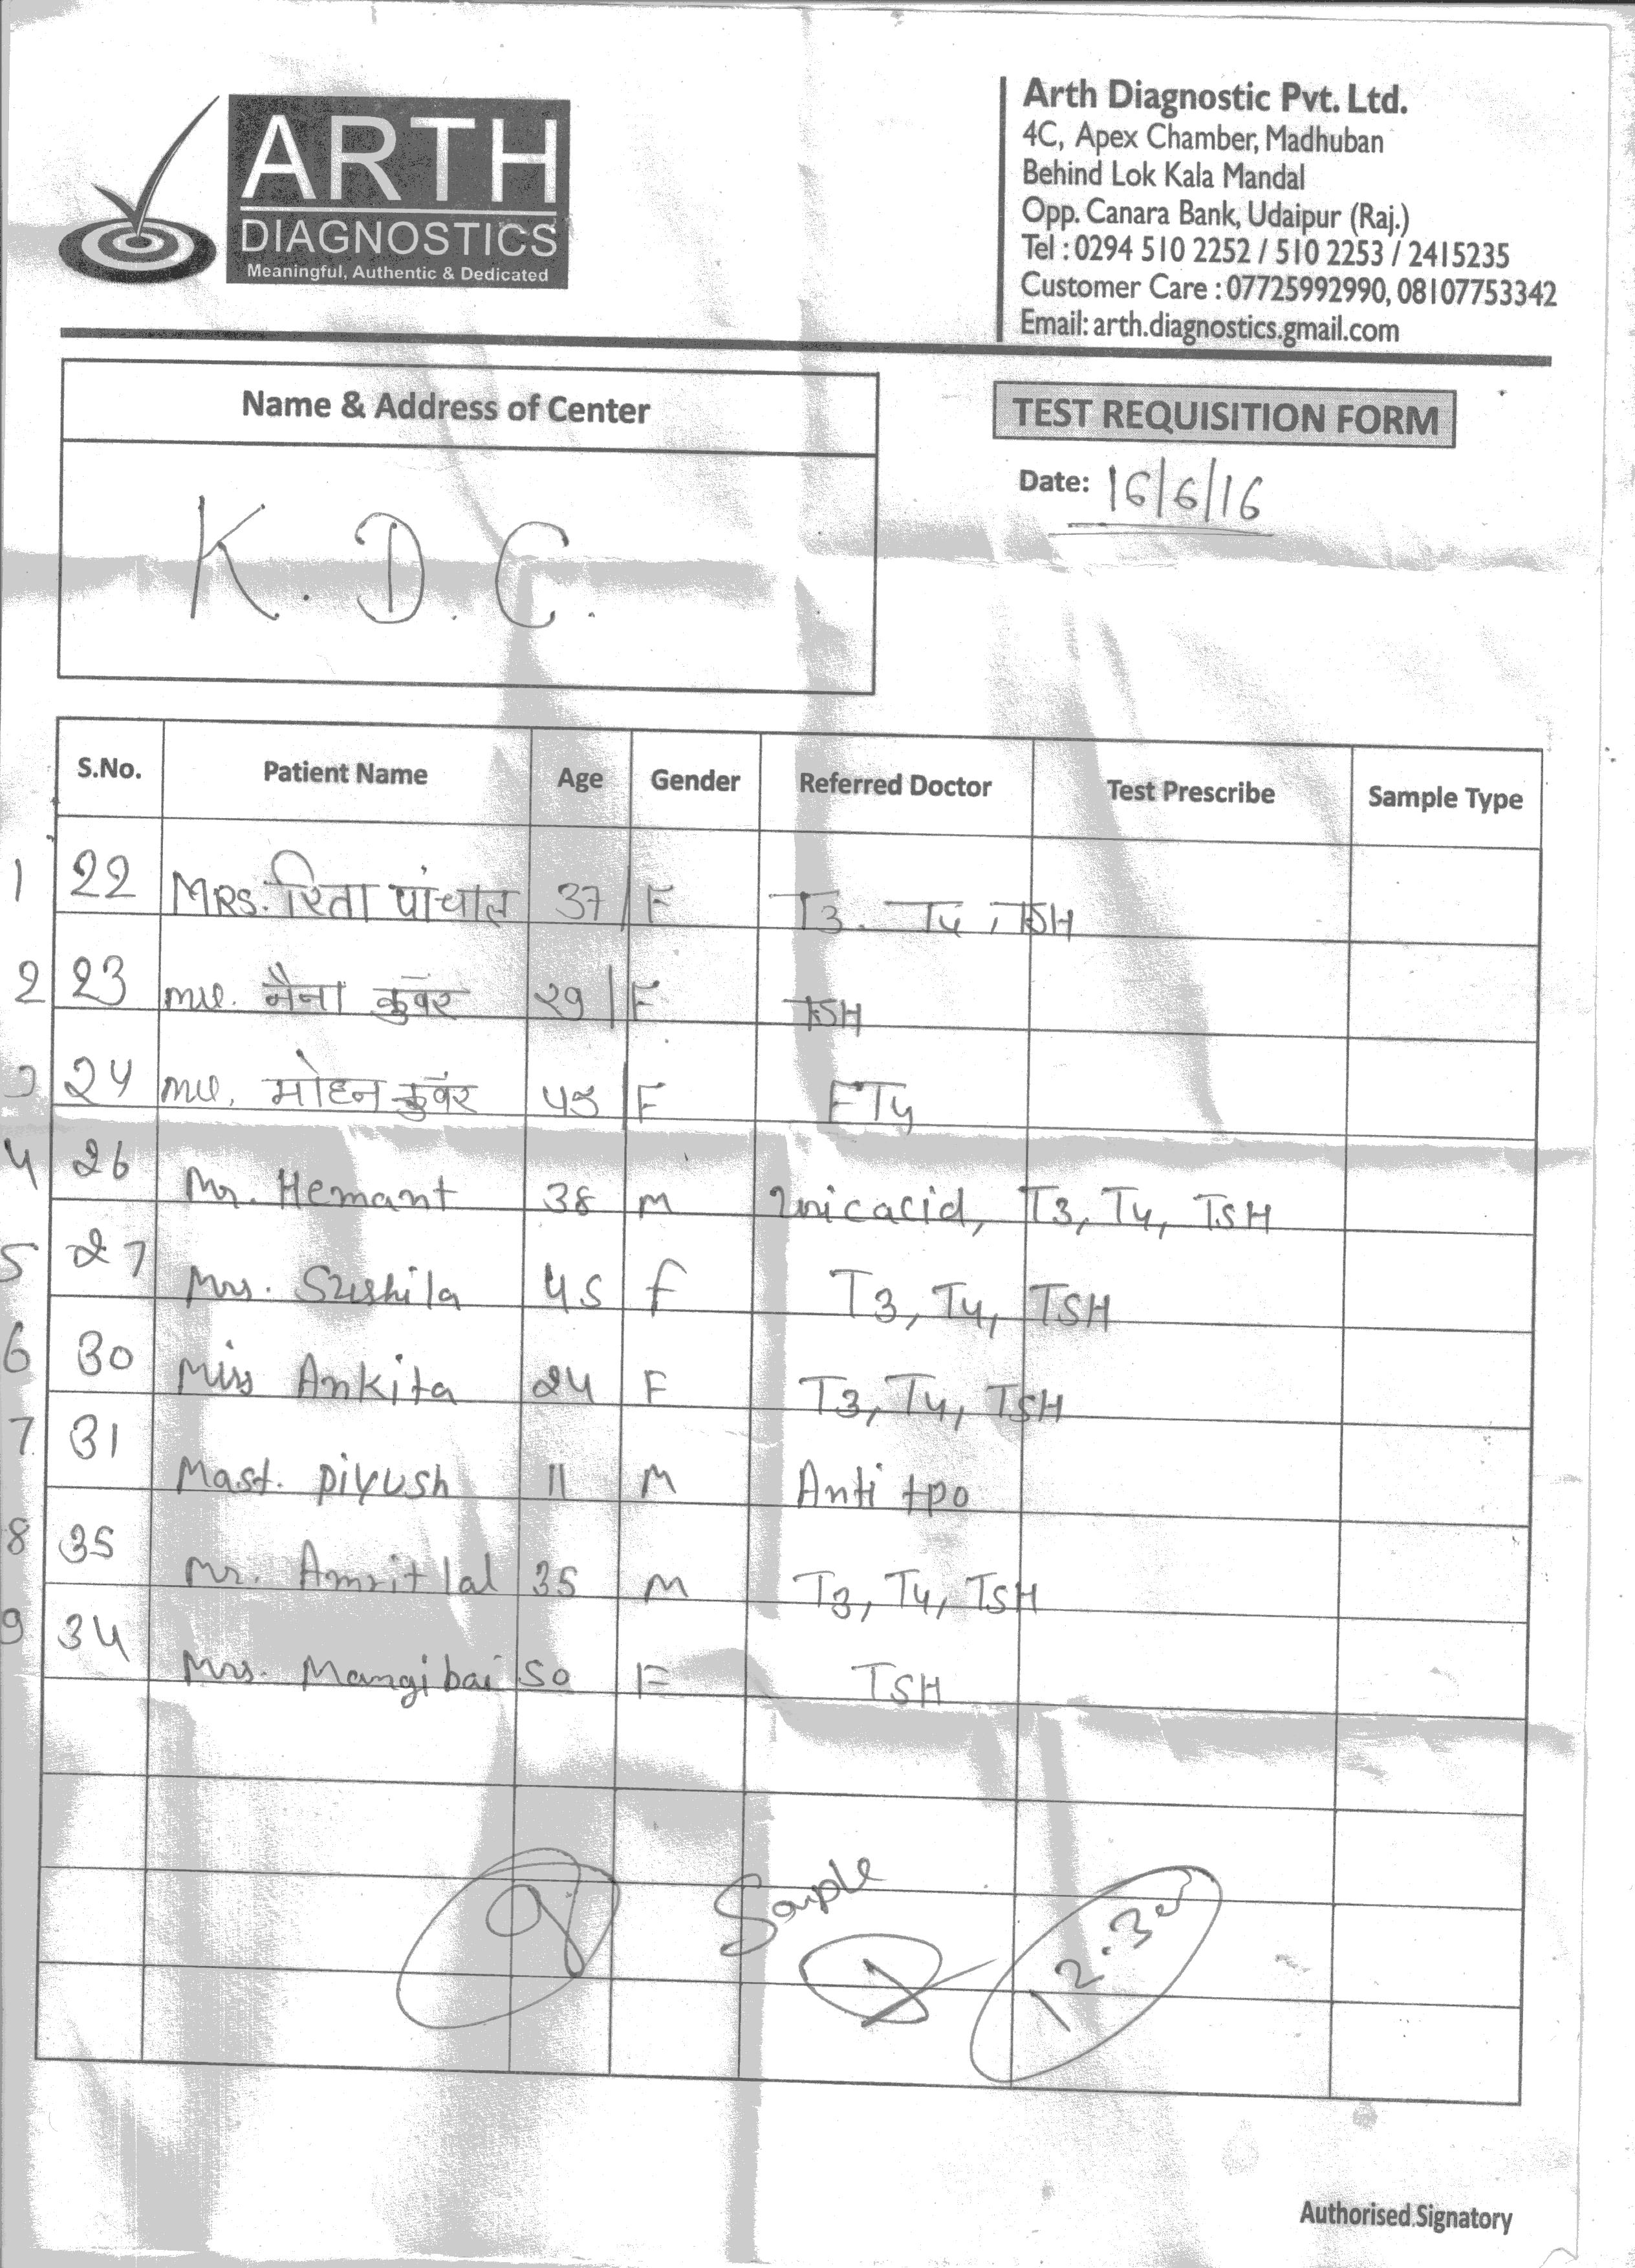 ARTH
DIAGNOSTICS
Meaningful, Authentic & Dedicated
Arth Diagnostic Pvt. Ltd.
4C, Apex Chamber, Madhuban
Behind Lok Kala Mandal
Opp. Canara Bank, Udaipur (Raj.)
Tel : 0294 510 2252 / 510 2253 / 2415235
Customer Care : 07725992990, 08107753342
Email: arth.diagnostics.gmail.com
Name & Address of Center
K. D. C.
TEST REQUISITION FORM
Date: 16/6/16
S.No. Patient Name Age Gender Referred Doctor Test Prescribe Sample Type
1 22 MRS. रिता पांचाल 37/F T3. T4, TSH
2 23 मैना कुवँर 29/F TSH
3 24 मोहन कुवँर 45/F FT4
4 26 Mr. Hemant 38 M Uricacid, T3, T4, TSH
5 27 Mrs. Sushila 45 F T3, T4, TSH
6 30 Miss Ankita 24 F T3, T4, TSH
7 31 Mast. Piyush 11 M Anti tpo
8 35 Mr. Amritlal 35 M T3, T4, TSH
9 34 Mrs. Mangibai 50 F TSH
9 Sample 12.30
Authorised Signatory